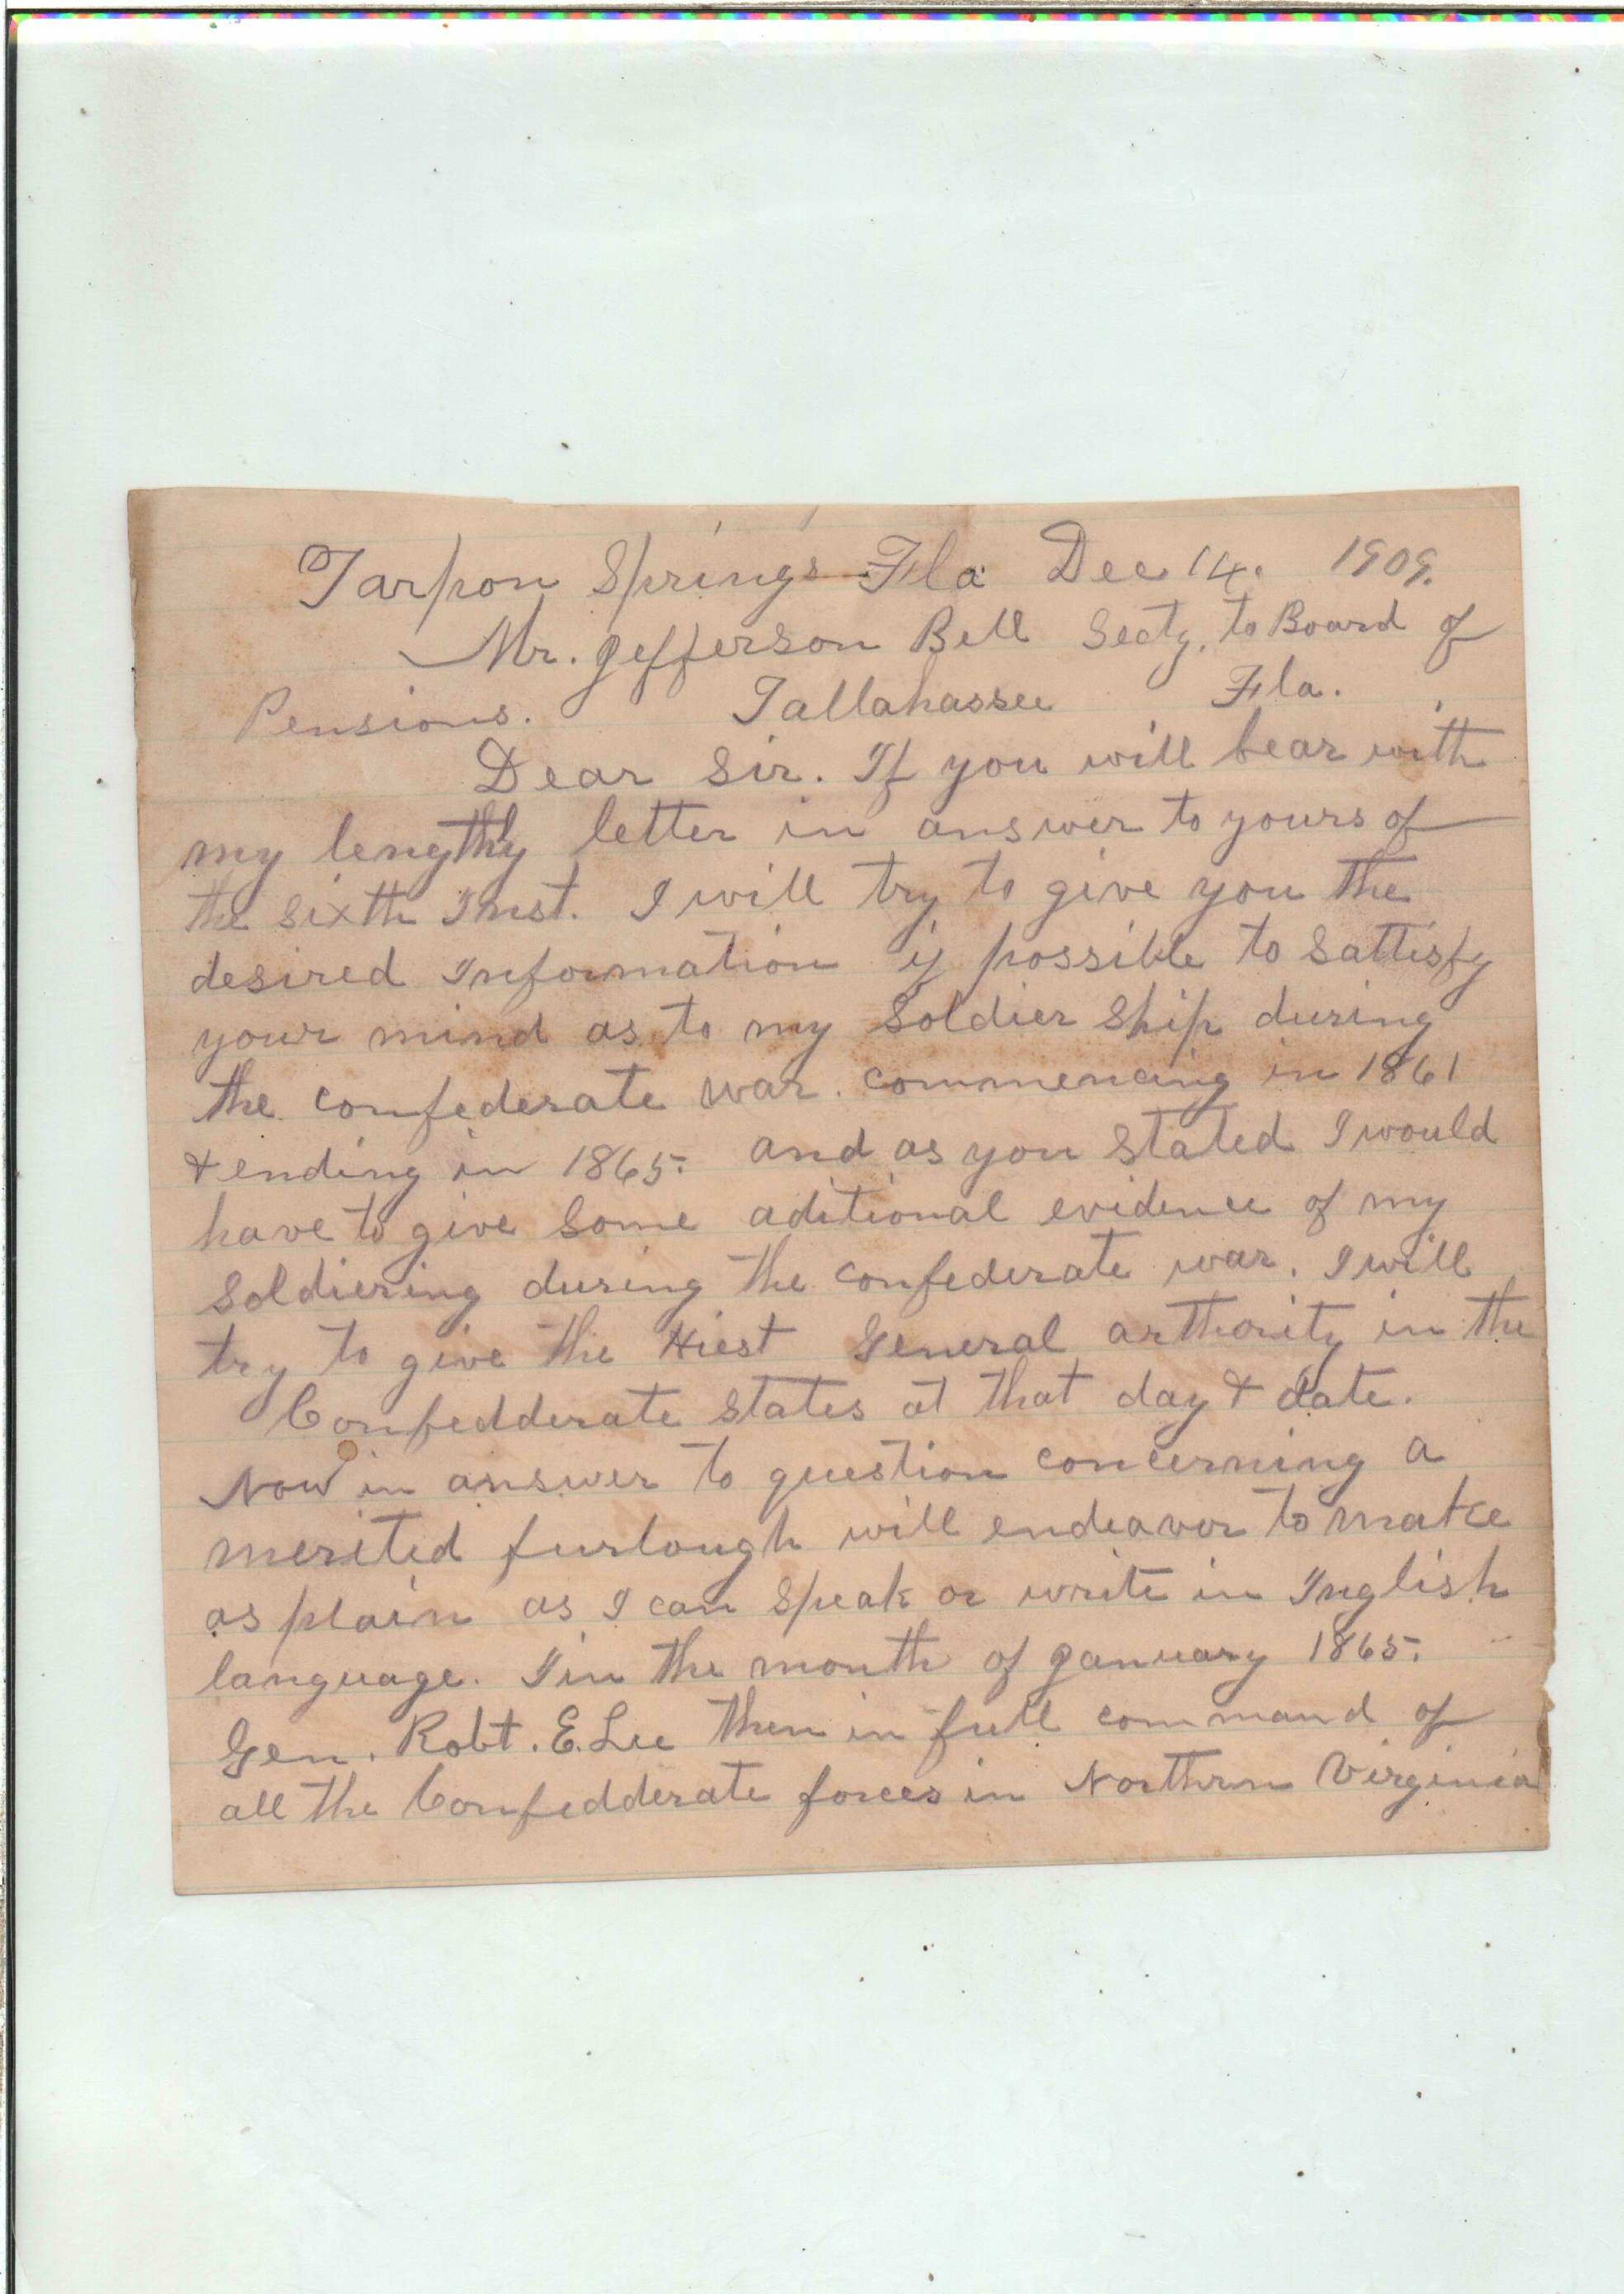 Tarpon Springs Fla Dec 14. 1909.
Mr. Jefferson Bell Secty. to Board of
Pensions. Tallahassee Fla.
Dear Sir. If you will bear with
my lengthy letter in answer to yours of
the sixth Inst. I will try to give you the
desired Information if possible to Sattisfy
your mind as to my Soldier Ship during
the confederate war. commencing in 1861
& ending in 1865. and as you Stated I would
have to give Some aditional evidence of my
Soldiering during the confederate war. I will
try to give the Hiest General arthority in the
Confedderate States at that day & date.
Now in answer to question concerning a
merited furlough will endeavor to make
as plain as I can Speak or write in Inglish
language. I in the month of January 1865.
Gen. Robt. E. Lee then in full command of
all the Confedderate forces in Northern Virginia